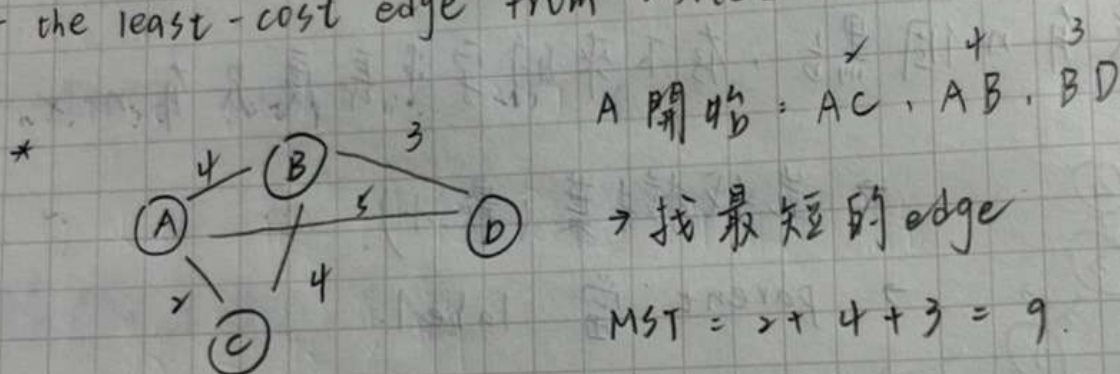 the least-cost edge from
2 4 3
A 開始 : AC、AB、BD
*
4 B 3
A 5 D
→ 找最短的 edge
2 4
C
MST = 2 + 4 + 3 = 9.